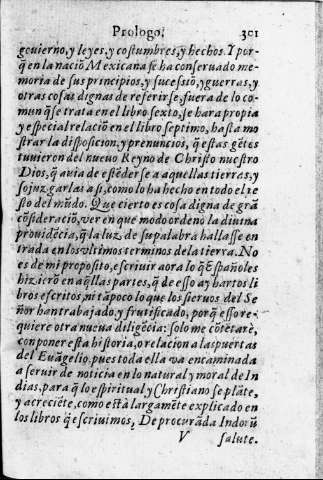 Prologo. 301
gouierno, y leyes, y costumbres, y hechos. Y por-
q̃ en la naciõ Mexicana se ha conseruado me-
moria de sus principios, y sucessiõ, y guerras, y
otras cosas dignas de referirse, fuera de lo co-
mun q̃ se trata en el libro sexto, se hara propia
y especial relaciõ en el libro septimo, hasta mo
strar la disposicion, y prenuncios, q̃ estas gẽtes
tuuieron del nueuo Reyno de Christo nuestro
Dios, q̃ auia de estẽderse a aquellas tierras, y
sojuzgarlas a si, como lo ha hecho en todo el re
sto del mũdo. Que cierto es cosa digna de grã
cõsideraciõ, ver en que modo ordenò la diuina
prouidẽcia, q̃ la luz de su palabra hallasse en
trada en los vltimos terminos de la tierra. No
es de mi proposito, escriuir aora lo q̃ Españoles
hizierõ en aq̃llas partes, q̃ de esso ay hartos li
bros escritos, ni tãpoco lo que los sieruos del Se
ñor han trabajado, y frutificado, porq̃ esso re-
quiere otra nueua diligẽcia: solo me cõtẽtarè,
con poner esta historia, o relacion a las puertas
del Euãgelio, pues toda ella va encaminada
a seruir de noticia en lo natural y moral de In
dias, para q̃ lo espiritual y Christiano se plãte,
y acreciẽte, como està largamẽte explicado en
los libros q̃ escriuimos, De procurãda Indorũ
V salute.